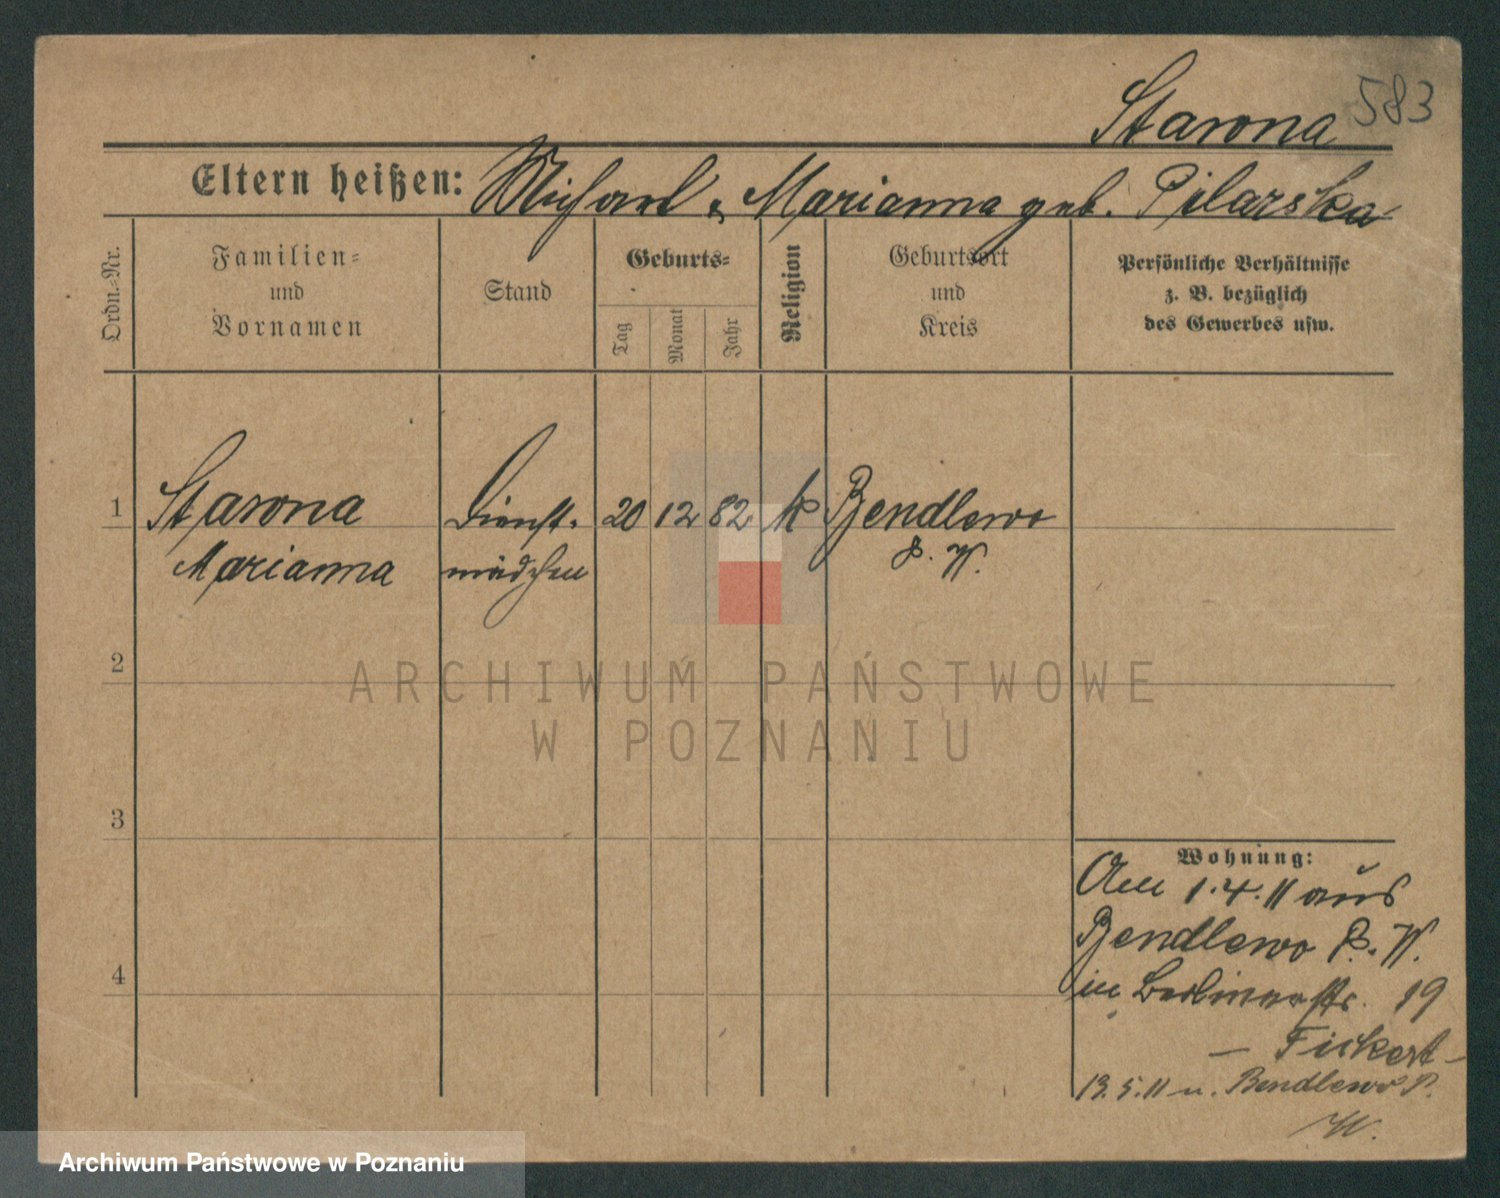 Starona 583
Eltern heißen: Michael u. Marianna geb. Pilarska
Ordn.=Nr.
Familien=
und
Vornamen
Stand
Geburts=
Tag
Monat
Jahr
Religion
Geburtsort
und
Kreis
Persönliche Verhältnisse
z. B. bezüglich
des Gewerbes usw.
1 Starona Dienst- 20 12 82 k Bendlewo
Marianna mädchen P. W.
2
3
4
Wohnung:
Am 1.4.11 aus
Bendlewo P. W.
in Berlinerstr. 19
– Fickert –
13.5.11 n. Bendlewo P.
W.
ARCHIWUM PAŃSTWOWE
W POZNANIU
Archiwum Państwowe w Poznaniu